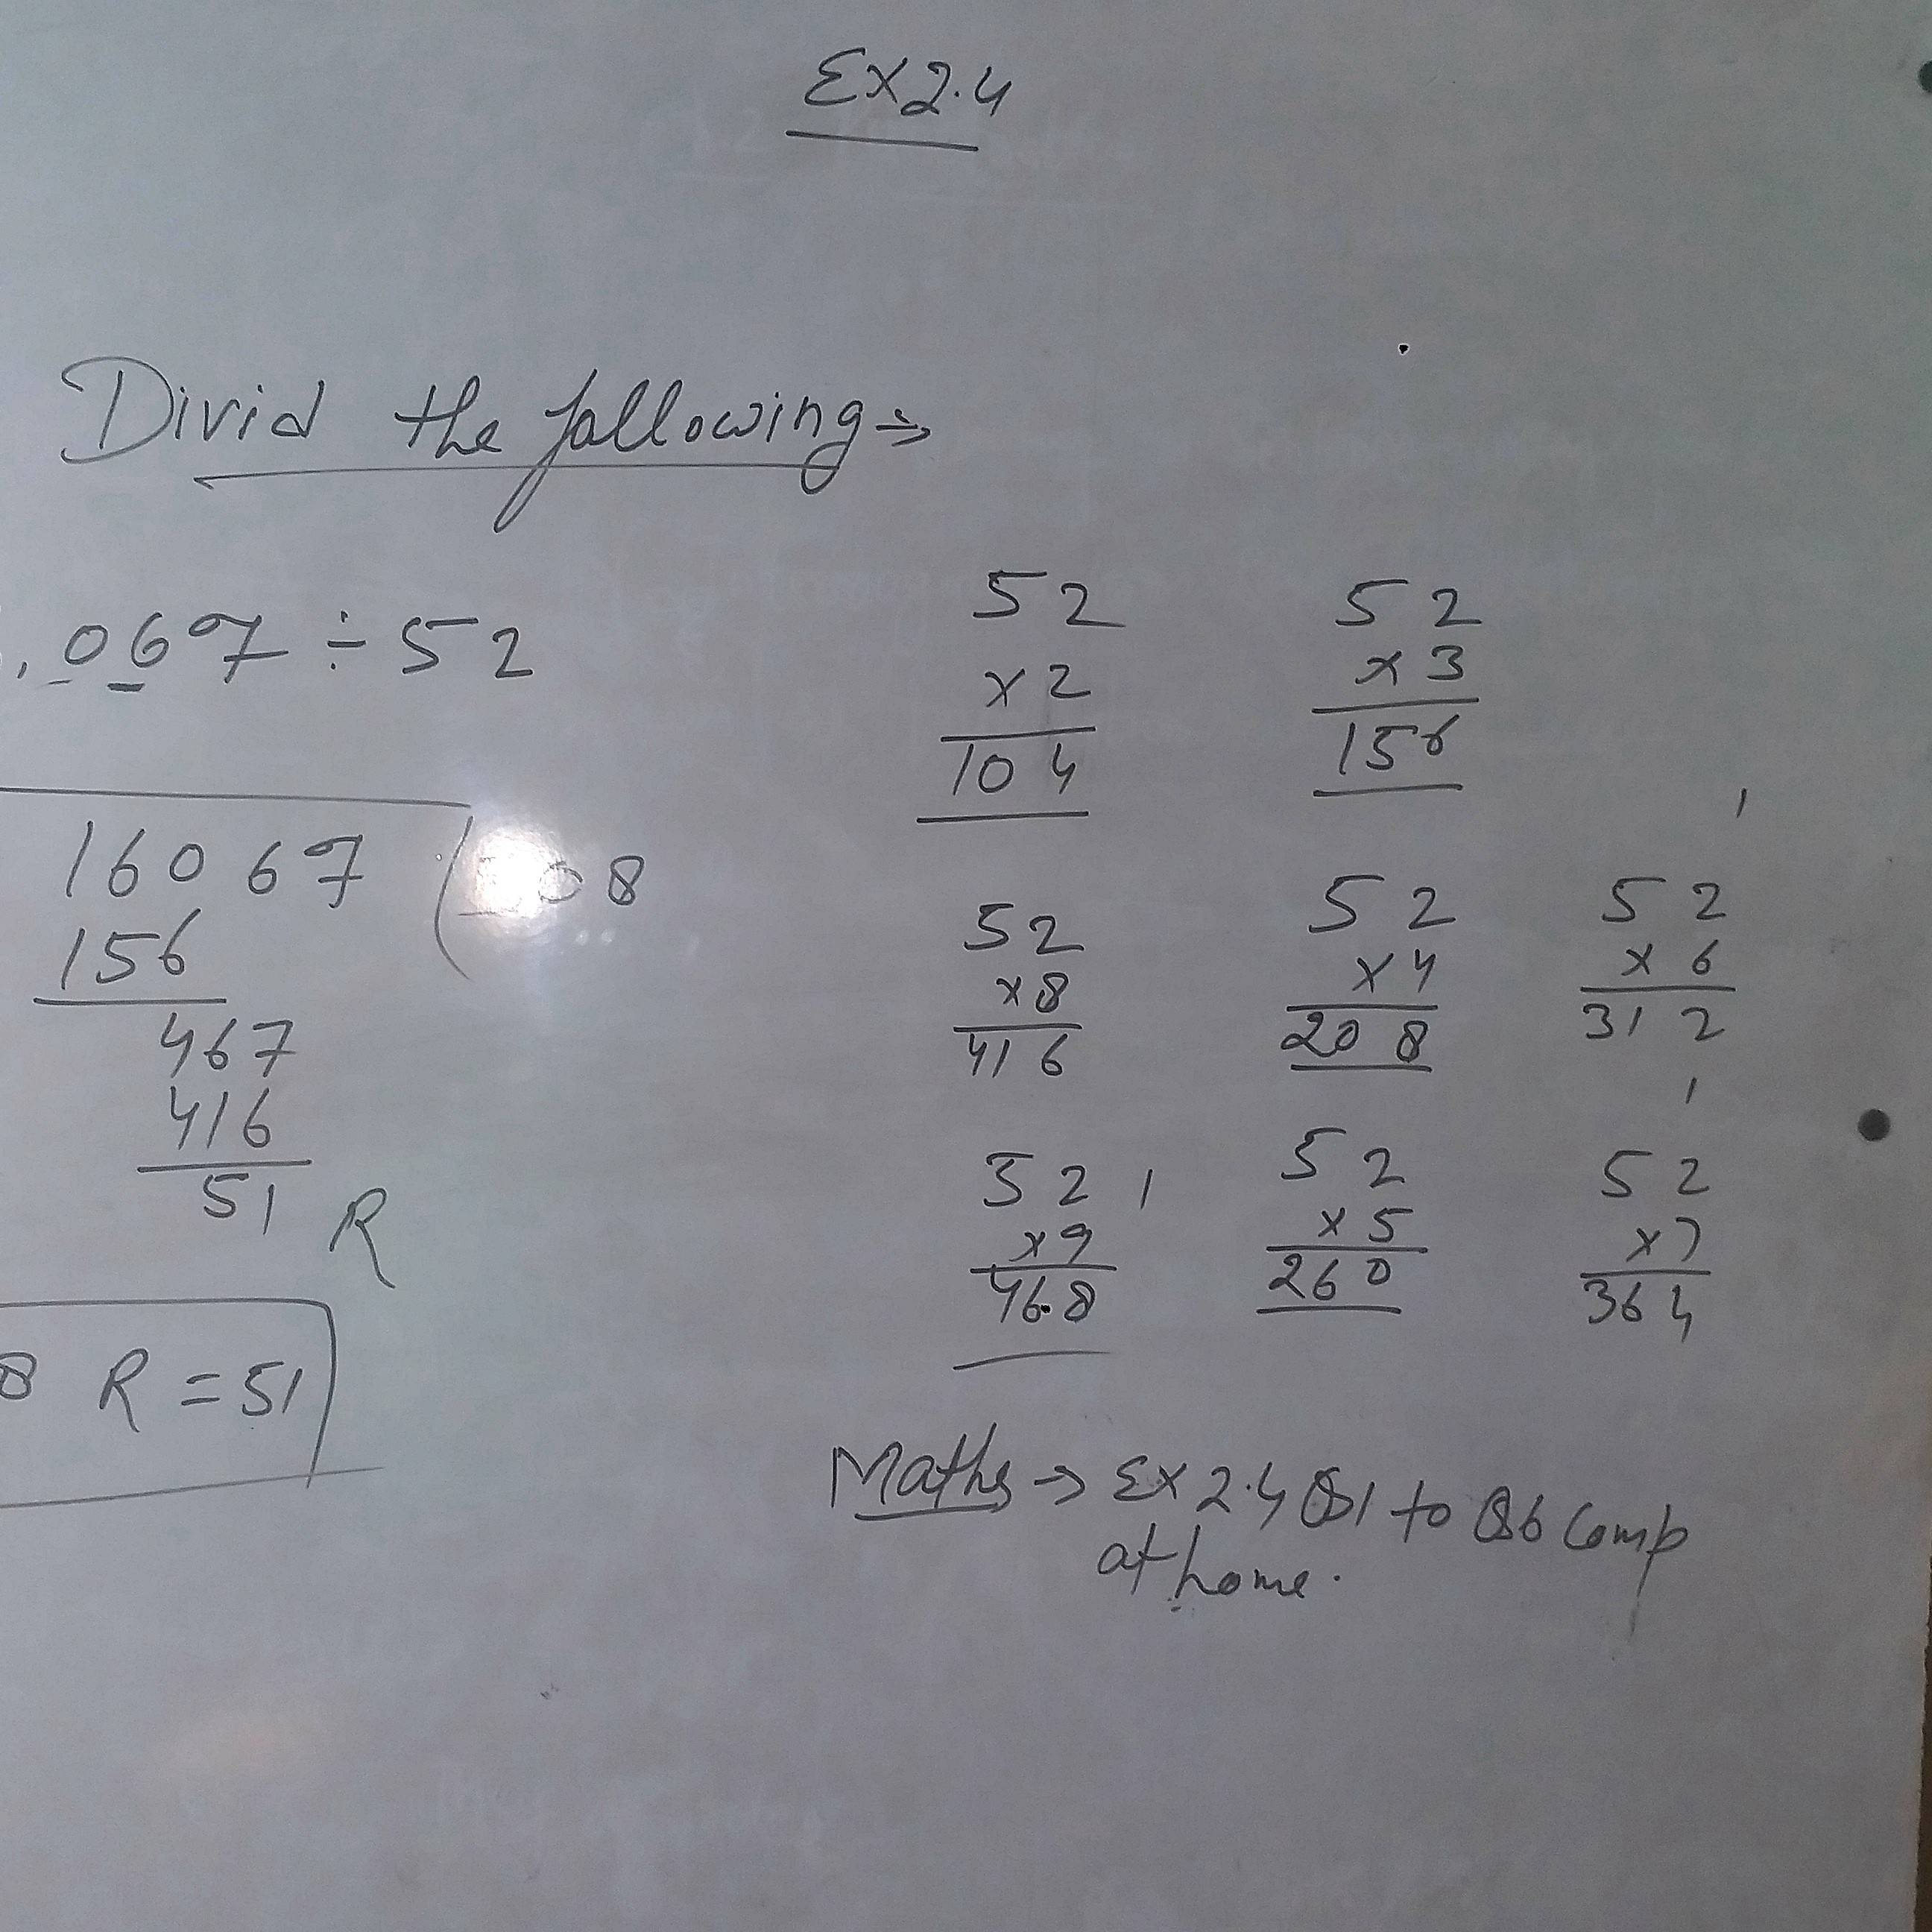 Ex 2.4
Divid the following →
,067 ÷ 52
16067 ( 08
156
467
416
51 R
8 R = 51
52
x2
104
52
x3
156
52
x8
416
52
x4
208
1
52
x6
312
52 1
x9
468
52
x5
260
1
52
x7
364
Maths → Ex 2.4 Q1 to Q6 Comp
at home.